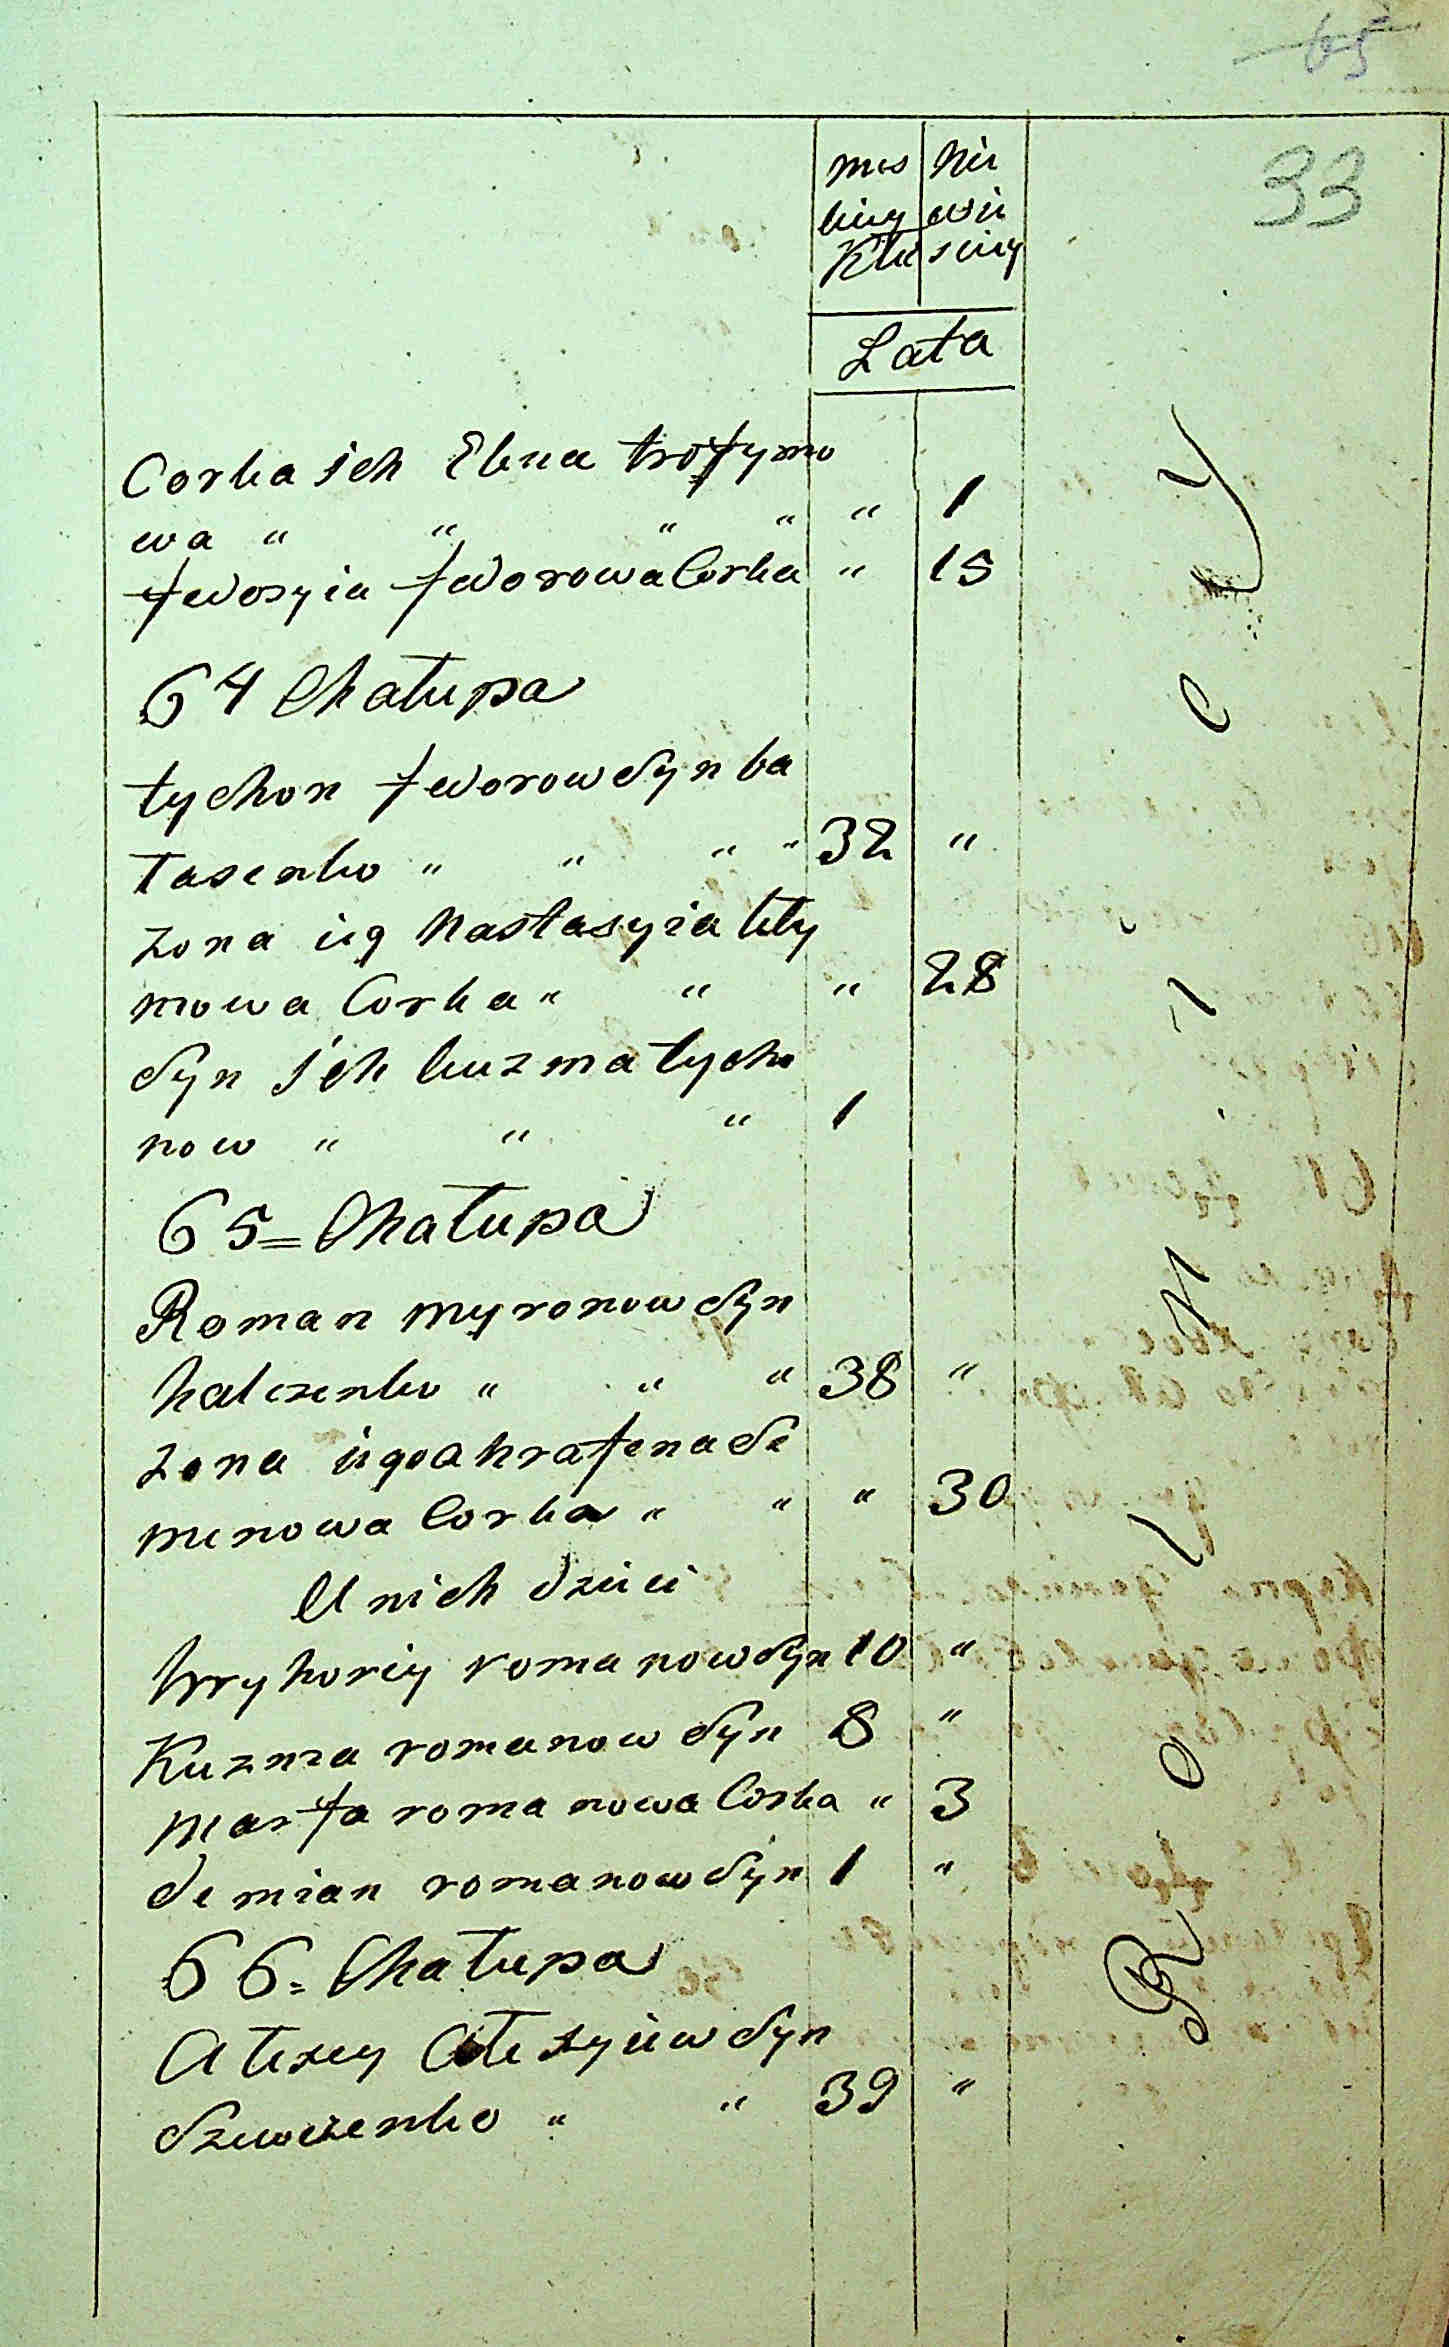 65
33
mes Nie
kiey wie
Kłu sciey
Lata
Corka ich Elena trofymo
wa " " " " " 1
fedosyia fedorowa Corka " 15
64 Chałupa
tychon fedorow Syn ba
Tasenko " " " " 32 "
zona ieg Nastasyia kly
mowa Corka " " " 28
Syn ich kuzma tycho
now " " " 1
65 = Chałupa
Roman myronow Syn
halczenko " " " 38 "
zona iego ahrafena Se
menowa Corka " " " 30
U nich dzieci
hryhoriy romanow Syn 10 "
Kuzma romanow Syn 8 "
Marfa romanowa Corka " 3
demian romanow Syn 1 "
66 = Chałupa
Alexey Alexyiew Syn
Szewczenko " " 39 "
Rolnicy